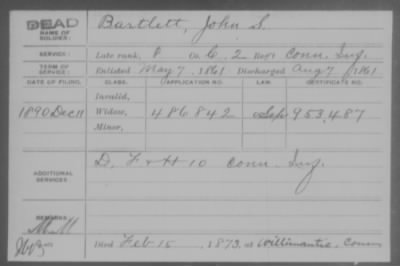 DEAD Bartlett, John S.
NAME OF SOLDIER:
SERVICE: Late rank, P Co. C, 2 Reg't Conn. Inf.
TERM OF SERVICE: Enlisted May 7, 1861 Discharged Aug 7, 1861
DATE OF FILING. APPLICATION NUMBER. LAW. CERTIFICATE NO.
Invalid,
1890 Dec 11 Widow, 486842 953,487
Minor,
ADDITIONAL SERVICES: D, F & H 10 Conn. Inf.
REMARKS:
Died Feb 15, 1873, at Willimantic, Conn